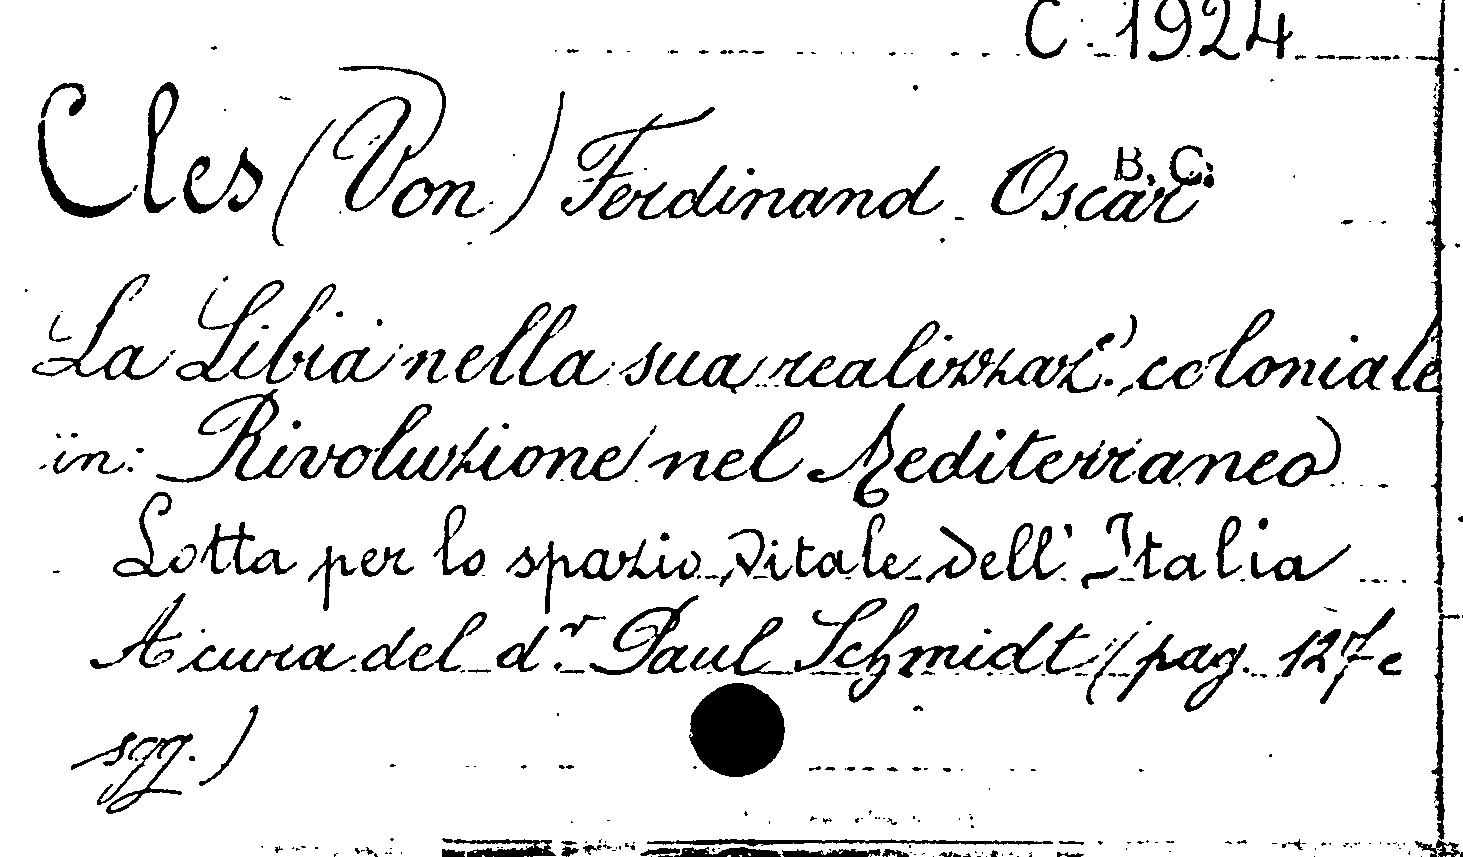 C 1924
Cles (Von) Ferdinand Oscar
B. C.
La Libia nella sua realizzaz.e coloniale
in: Rivoluzione nel Mediterraneo
Lotta per lo spazio vitale dell' Italia
A cura del d.r Paul Schmidt (pag. 127 e
sgg.)